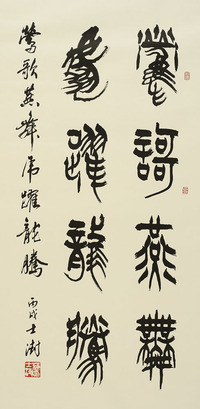 鶯謌燕舞
虎躍龍騰
莺歌燕舞虎躍龍騰
丙戌士澍